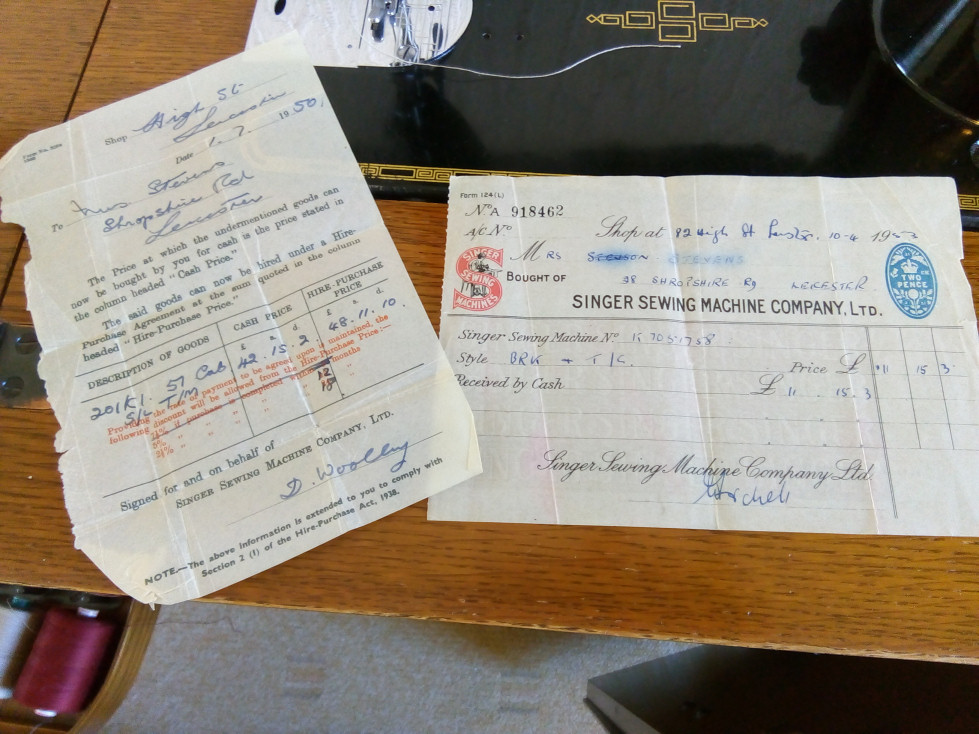 Shop High St
Leicester
Date 1.7. 1950.
To Mrs Stevens
Shropshire Rd
Leicester
The Price at which the undermentioned goods can
now be bought by you for cash is the price stated in
the column headed "Cash Price."
The said goods can now be hired under a Hire-
Purchase Agreement at the sum quoted in the column
headed "Hire-Purchase Price."
DESCRIPTION OF GOODS CASH PRICE HIRE-PURCHASE PRICE
£ s. d. £ s. d.
201K1. 57 Cab 42. 15. 2. 48. 11. 10.
S/L T/M
Providing the rate of payment to be agreed upon is maintained, the
following discount will be allowed from the Hire-Purchase Price:—
if purchase is completed within months
12
18
Signed for and on behalf of
SINGER SEWING MACHINE COMPANY, LTD.
D. Woolley
NOTE.—The above information is extended to you to comply with
Section 2 (1) of the Hire-Purchase Act, 1938.
Form 124(L)
No A 918462
A/C No
Shop at 82 High St 10-4 195
SINGER
SEWING
MACHINES
MRS STEVENS
BOUGHT OF 38 SHROPSHIRE RD LEICESTER
SINGER SEWING MACHINE COMPANY, LTD.
TWO
PENCE
Singer Sewing Machine No
Style BRK + T/L Price £ 11 15 3
Received by Cash £ 11 . 15 . 3
Singer Sewing Machine Company Ltd.